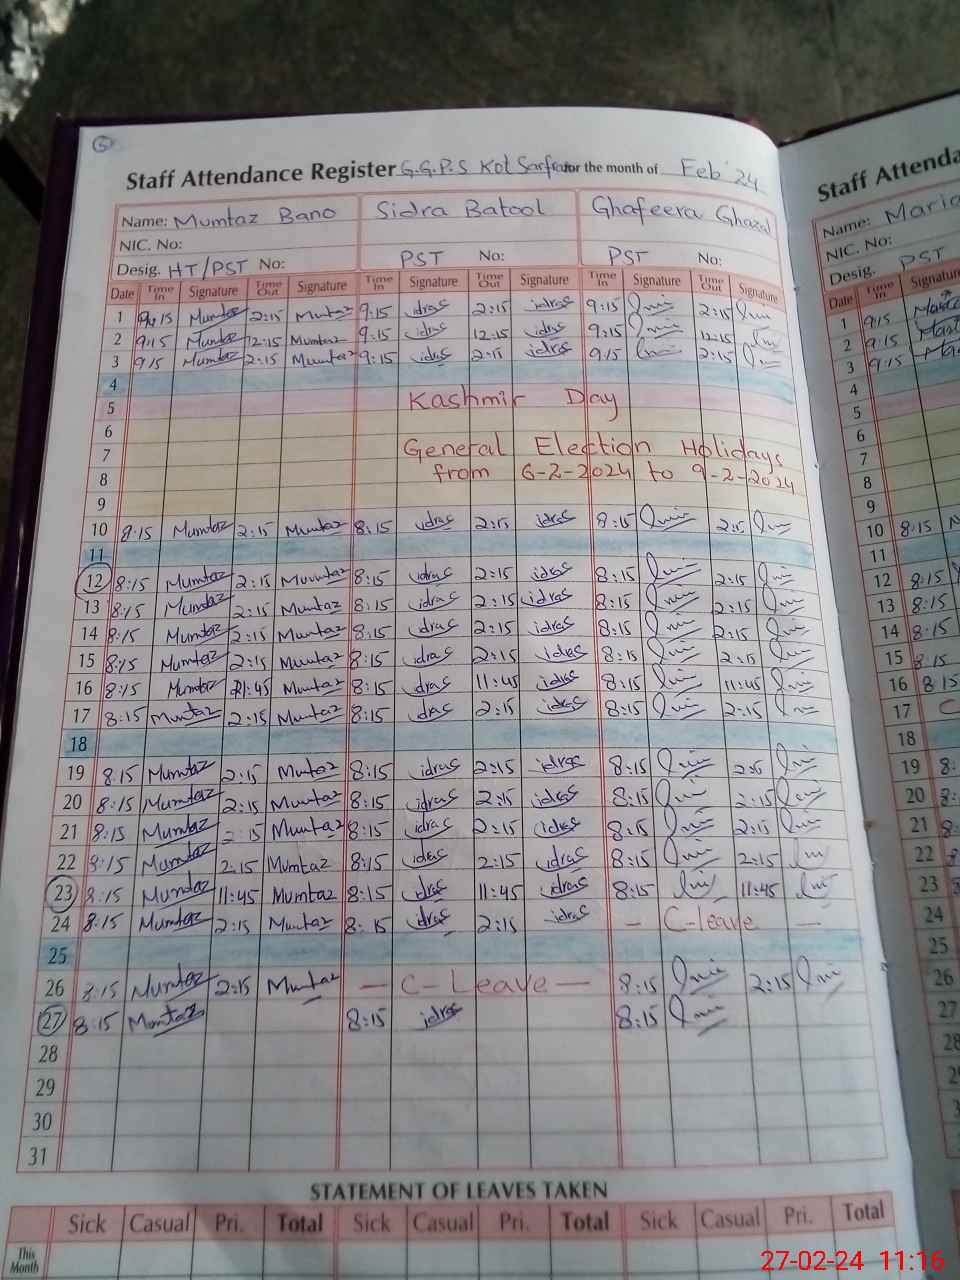 5
Staff Attendance Register G.G.P.S Kot Sarfraz for the month of Feb '24
Name: Mumtaz Bano Sidra Batool Ghafeera Ghazal
NIC. No:
Desig. HT/PST No: PST No: PST No:
Date Time In Signature Time Out Signature Time In Signature Time Out Signature Time In Signature Time Out Signature
1 9:15 Mumtaz 2:15 Mumtaz 9:15 idras 2:15 idras 9:15 2:15
2 9:15 Mumtaz 12:15 Mumtaz 9:15 idras 12:15 idras 9:15 12:15
3 9:15 Mumtaz 2:15 Mumtaz 9:15 idras 2:15 idras 9:15 2:15
4
5 Kashmir Day
6
7 General Election Holidays
8 from 6-2-2024 to 9-2-2024
9
10 8:15 Mumtaz 2:15 Mumtaz 8:15 idras 2:15 idras 8:15 2:15
11
12 8:15 Mumtaz 2:15 Mumtaz 8:15 idras 2:15 idras 8:15 2:15
13 8:15 Mumtaz 2:15 Mumtaz 8:15 idras 2:15 idras 8:15 2:15
14 8:15 Mumtaz 2:15 Mumtaz 8:15 idras 2:15 idras 8:15 2:15
15 8:15 Mumtaz 2:15 Mumtaz 8:15 idras 2:15 idras 8:15 2:15
16 8:15 Mumtaz 11:45 Mumtaz 8:15 idras 11:45 idras 8:15 11:45
17 8:15 Mumtaz 2:15 Mumtaz 8:15 idras 2:15 idras 8:15 2:15
18
19 8:15 Mumtaz 2:15 Mumtaz 8:15 idras 2:15 idras 8:15 2:15
20 8:15 Mumtaz 2:15 Mumtaz 8:15 idras 2:15 idras 8:15 2:15
21 8:15 Mumtaz 2:15 Mumtaz 8:15 idras 2:15 idras 8:15 2:15
22 8:15 Mumtaz 2:15 Mumtaz 8:15 idras 2:15 idras 8:15 2:15
23 8:15 Mumtaz 11:45 Mumtaz 8:15 idras 11:45 idras 8:15 11:45
24 8:15 Mumtaz 2:15 Mumtaz 8:15 idras 2:15 idras — C-leave —
25
26 8:15 Mumtaz 2:15 Mumtaz — C-Leave — 8:15 2:15
27 8:15 Mumtaz 8:15 idras 8:15
28
29
30
31
STATEMENT OF LEAVES TAKEN
Sick Casual Pri. Total Sick Casual Pri. Total Sick Casual Pri. Total
This Month
Staff Attenda
Name: Maria
NIC. No:
Desig. PST
Date Time In Signature
1 9:15
2 9:15
3 9:15
4
5
6
7
8
9
10 8:15
11
12 8:15
13 8:15
14 8:15
15 8:15
16 8:15
17 C
18
19 8:
20 8:
21 8:
22
23
24
25
26
27
28
27-02-24 11:16